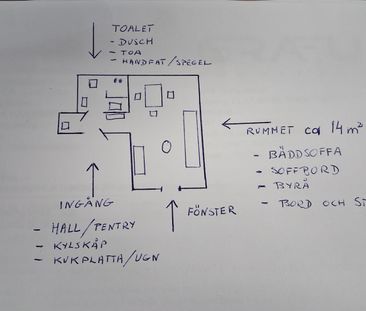 TOALET
- DUSCH
- TOA
- HANDFAT/SPEGEL
RUMMET ca 14 m²
- BÄDDSOFFA
- SOFFBORD
- BYRÅ
- BORD OCH
INGÅNG
- HALL/PENTRY
- KYLSKÅP
- KUKPLATTA/UGN
FÖNSTER